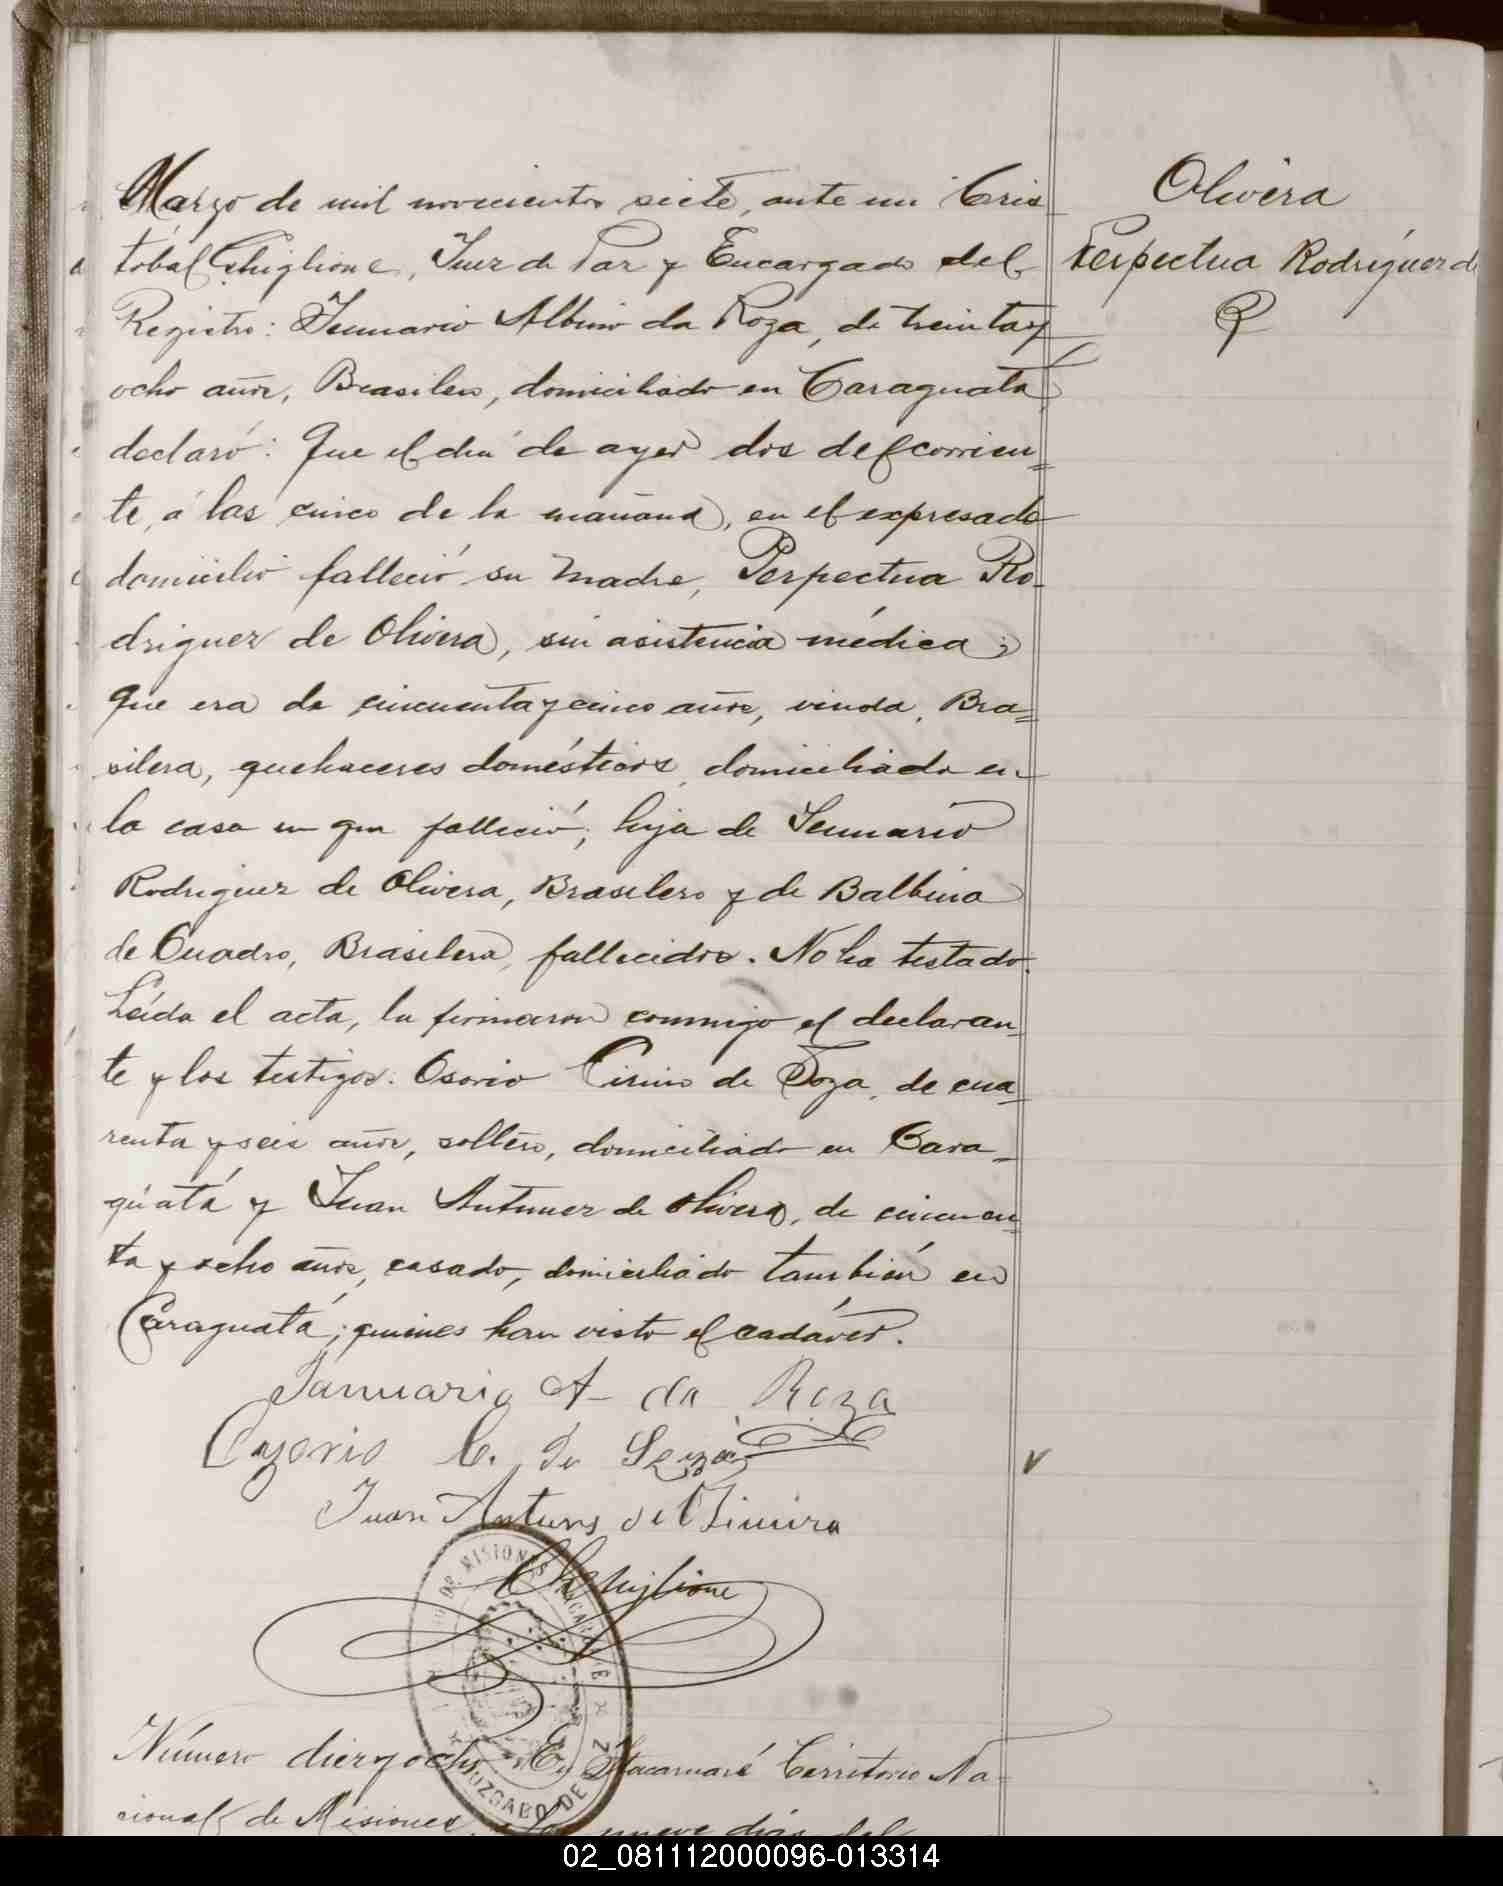 Olivera
Perpectua Rodriguez de
Marzo de mil novecientos siete, ante mi Cris
tobal Ghiglione, Juez de Paz y Encargado del
Registro: Jenuario Albino da Roza, de treinta y
ocho años, Brasilero, domiciliado en Caraguatá,
declaró: Que el dia de ayer dos del corrien=
te, á las cinco de la mañana, en el expresado
domicilio falleció su madre, Perpectua Ro-
driguez de Olivera, sin asistencia médica;
que era de cincuenta y cinco años, viuda, Bra=
silera, quehaceres domésticos, domiciliada en
la casa en que falleció; hija de Jenuario
Rodriguez de Olivera, Brasilero y de Balbina
de Cuadro, Brasilera, fallecidos. No ha testado.
Leída el acta, la firmaron conmigo el declaran=
te y los testigos: Osorio Cirino de Soza, de cua=
renta y seis años, soltero, domiciliado en Cara=
guatá y Juan Antunez de Olivera, de cincuen=
ta y ocho años, casado, domiciliado también en
Caraguatá; quienes han visto el cadáver.
Januario A da Roza
Ozorio C. de Souza
Juan Antuns de Oliveira
CGhiglione
DE MISIONES
JUZGADO DE
Número diez y ocho En Itacaruaré Territorio Na-
cional de Misiones, a los nueve días del
02_081112000096-013314